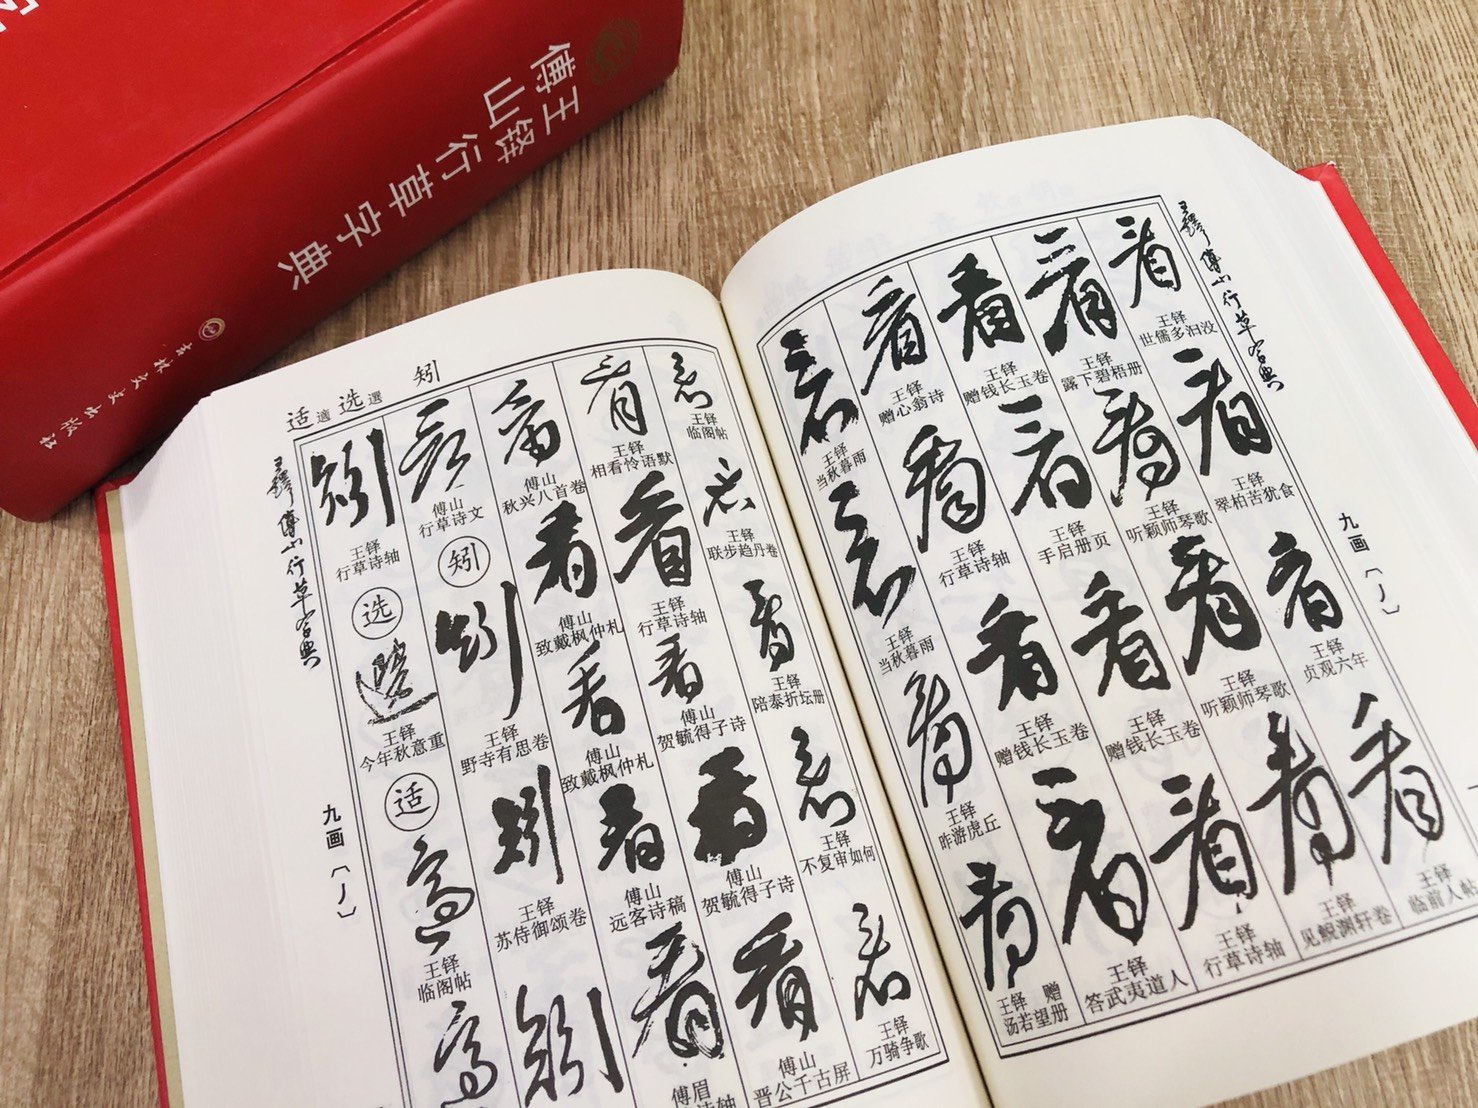 王铎
傅山行草字典
吉林文史出版社
王铎傅山行草字典
九画〔丿〕
王铎
世儒多汩没
王铎
翠柏苦犹食
王铎
贞观六年
王铎
临前人帖
王铎
露下碧梧册
王铎
听颖师琴歌
王铎
听颖师琴歌
王铎
见鲵渊轩卷
王铎
赠钱长玉卷
王铎
手启册页
王铎
赠钱长玉卷
王铎
行草诗轴
王铎
赠心翁诗
王铎
行草诗轴
王铎
赠钱长玉卷
王铎
答武夷道人
王铎
当秋暮雨
王铎
当秋暮雨
王铎
昨游虎丘
王铎 赠
汤若望册
适適选選 矧
王铎傅山行草字典
九画〔丿〕
王铎
临阁帖
王铎
联步趋丹卷
王铎
陪泰折坛册
王铎
不复审如何
王铎
万骑争歌
王铎
相看怜语默
王铎
行草诗轴
傅山
贺毓得子诗
傅山
贺毓得子诗
傅山
晋公千古屏
傅山
秋兴八首卷
傅山
致戴枫仲札
傅山
致戴枫仲札
傅山
远客诗稿
傅眉
傅山
行草诗文
矧
王铎
野寺有思卷
王铎
苏侍御颂卷
王铎
行草诗轴
选
王铎
今年秋意重
适
王铎
临阁帖